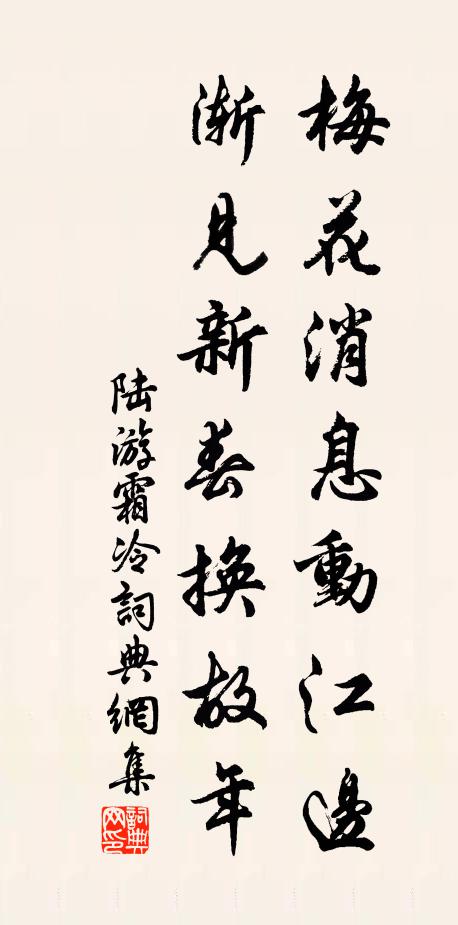 梅花消息動江邊
漸見新春換故年
陆游霜冷詞典網集
詞典网印